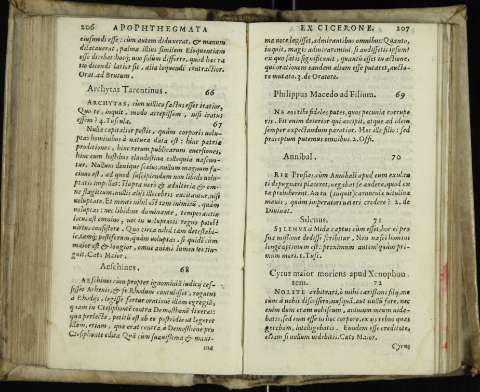 206 APOPHTHEGMATA
eiusmodi esse: cùm autem diduxerat, & manum
dilatauerat, palmæ illius similem Eloquentiam
esse dicebat
do dicendi latior sit, alia loquendi contractior.
Orat. ad Brutum.
Archytas Tarentinus. 66
ARCHYTAS, cùm villico factus esset iratior,
Quo te, inquit, modo accepissem, nisi iratus
essem? 4. Tuscula.
67
Nulla capitalior pestis, quàm corporis volu-
ptas hominibus à natura data est: hinc patriæ
proditiones, hinc rerum publicarum euersiones,
hinc cum hostibus clandestina colloquia nascun-
tur. Nullum denique scelus, nullum magnum fa-
cinus est, ad quod suscipiendum non libido volu-
ptatis impellat: stupra verò & adulteria & om-
ne flagitium, nullis aliis illecebris excitantur, nisi
voluptate. Et menti nihil est tam inimicum, quàm
voluptas: nec libidine dominante, temperantiæ
locus est omnino, nec in voluptatis regno potest
virtus consistere. Quo circa nihil tam detestabi-
le, tamque pestiferum, quàm voluptas, si quidem cùm
maior est & longior, omne animi lumen extin-
guit. Cato Maior.
Aeschines. 68
AESCHINES cùm propter ignominiã iudicii ces-
sisset Athenis, & se Rhodum contulisset, rogatus
à Rhodiis, legisse fertur orationē illam egregiã,
quam in Ctesiphontē contra Demosthenē dixerat:
qua perlecta, petitū est ab eo postridie ut legeret
illam, etiam, quæ erat contrà à Demosthene pro
Ctesiphonte edita. Quā cùm suauissima & maxi-
ma
EX CICERONE. 207
ma voce legisset, admirantibus omnibus: Quanto,
inquit, magis admiraremini, si audissetis ipsum?
ex quo satis significauit, quantū esset in actione,
qui orationem eandem aliam esse putaret, aucto-
re mutato. 3. de Oratore.
Philippus Macedo ad Filium. 69
NE existimes fideles putes, quos pecunia corrupe-
ris. Fit enim deterior qui accipit, atque ad idem
semper expectandum paratior. Hæc ille filio: sed
præceptum putemus omnibus. 2. Offi.
Annibal. 70
REX Prusias, cùm Annibali apud eum exulan-
ti depugnari placeret, negabat se audere, quod ex-
ta prohiberent. An tu (inquit) carunculæ vitulinæ
mauis, quàm imperatori veteri credere? 2. de
Diuinat.
Silenus. 71
SILENUS à Mida captus cùm esset, hoc ei pro
sua missione dedisse scribitur, Non nasci homini
longè optimum est: proximum autem quàm pri-
mùm mori. 1. Tusc.
Cyrus maior moriens apud Xenophon-
tem. 72
NOLITE arbitrari, ô mihi carissimi filii, me
cùm à vobis discessero, nusquã, aut nullū fore, nec
enim dum eram vobiscum, animum meum uide-
batis: sed eum esse in hoc corpore, ex iis rebus quas
gerebam, intelligebatis. Eundem esse creditote,
etiam si nullum uidebitis. Cato Maior.
Cyrus